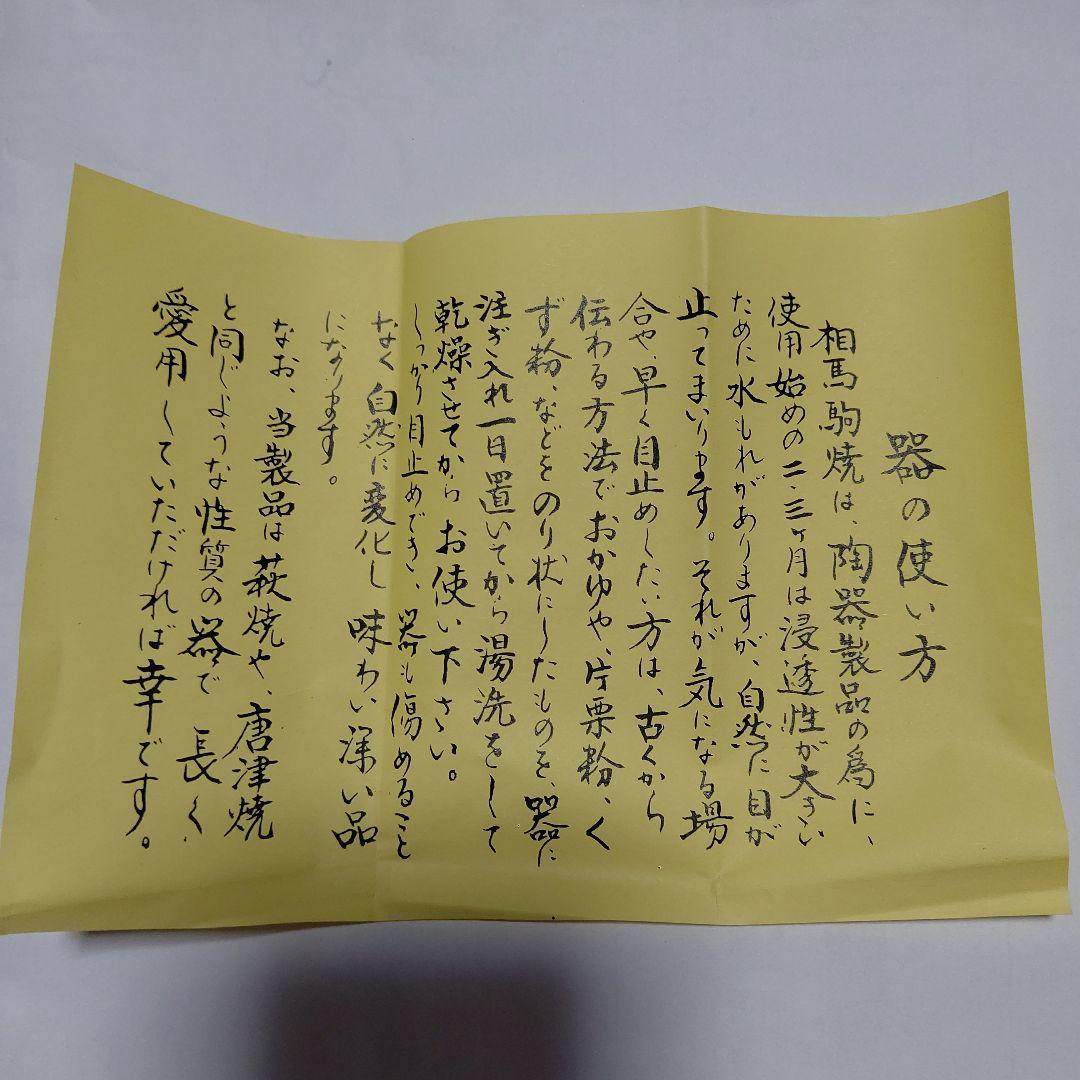 器の使い方
相馬駒焼は、陶器製品の為に、
使用始めの二・三ヶ月は浸透性が大きい
ために水もれがありますが、自然に目が
止ってまいります。それが気になる場
合や、早く目止めしたい方は、古くから
伝わる方法でおかゆや、片栗粉、く
ず粉、などをのり状にしたものを、器に
注ぎ入れ一日置いてから湯洗をして
乾燥させてからお使い下さい。
しっかり目止めでき、器も傷めること
なく自然に変化し味わい深い品
になります。
なお、当製品は萩焼や、唐津焼
と同じような性質の器で長く
愛用していただければ幸です。